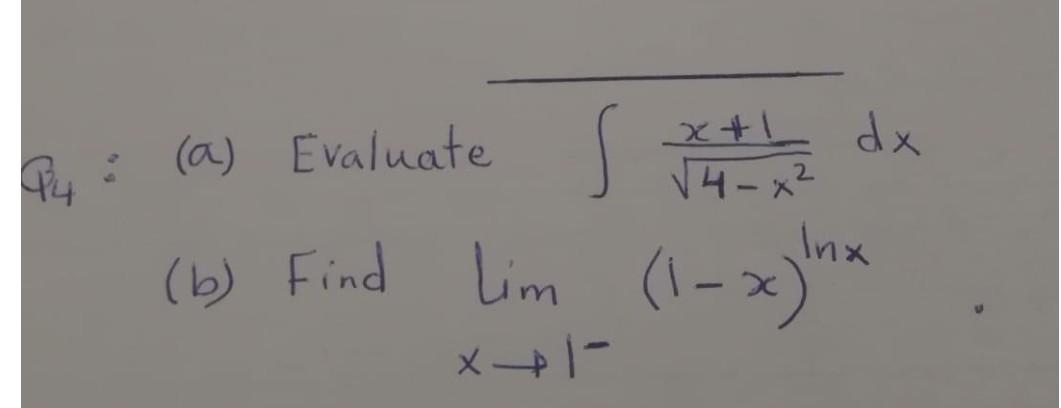 Q4 : (a) Evaluate ∫ (x+1)/√(4-x²) dx
(b) Find Lim x→1⁻ (1-x)^lnx .